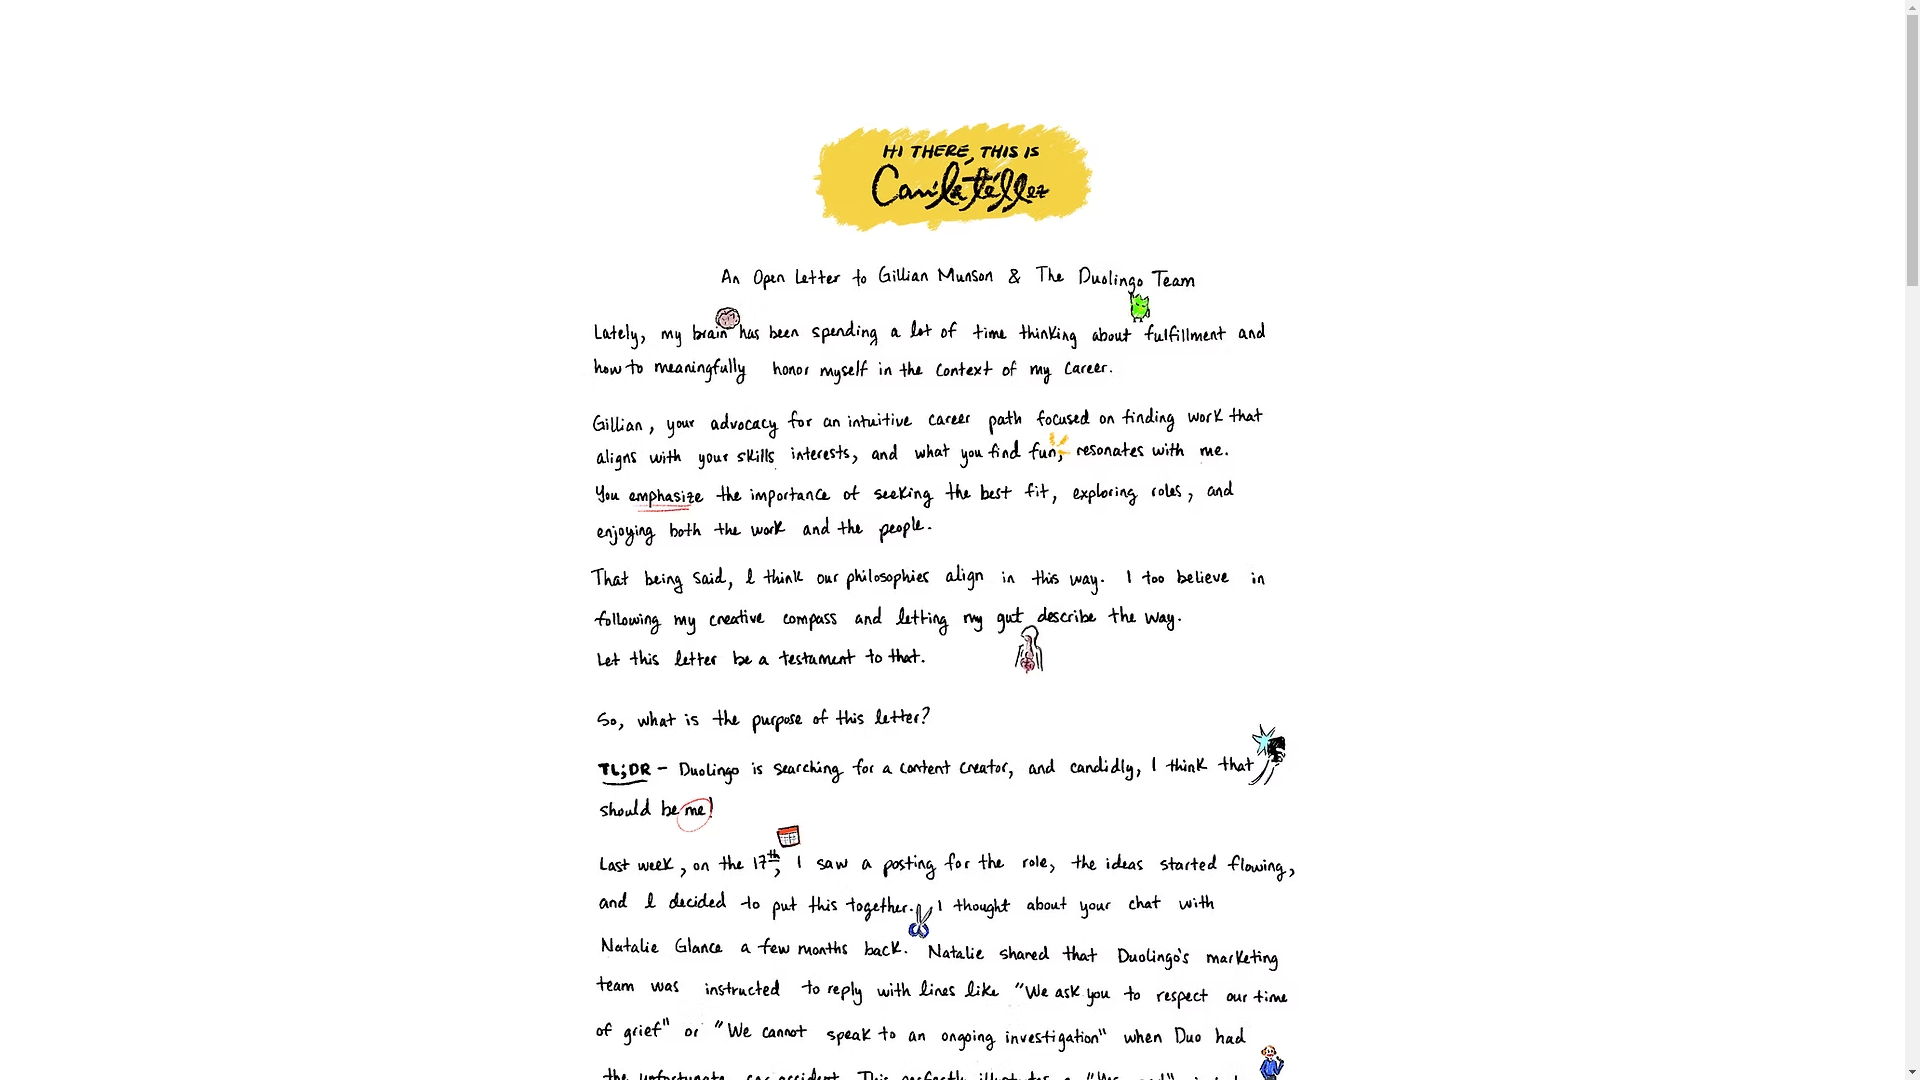 HI THERE, THIS IS
Camila Téllez
An Open Letter to Gillian Munson & The Duolingo Team
Lately, my brain has been spending a lot of time thinking about fulfillment and
how to meaningfully honor myself in the context of my career.
Gillian, your advocacy for an intuitive career path focused on finding work that
aligns with your skills interests, and what you find fun, resonates with me.
You emphasize the importance of seeking the best fit, exploring roles, and
enjoying both the work and the people.
That being said, I think our philosophies align in this way. I too believe in
following my creative compass and letting my gut describe the way.
Let this letter be a testament to that.
So, what is the purpose of this letter?
TL;DR - Duolingo is searching for a content creator, and candidly, I think that
should be me!
Last week, on the 17th, I saw a posting for the role, the ideas started flowing,
and I decided to put this together. I thought about your chat with
Natalie Glance a few months back. Natalie shared that Duolingo's marketing
team was instructed to reply with lines like "We ask you to respect our time
of grief" or "We cannot speak to an ongoing investigation" when Duo had
the unfortunate car accident. This perfectly